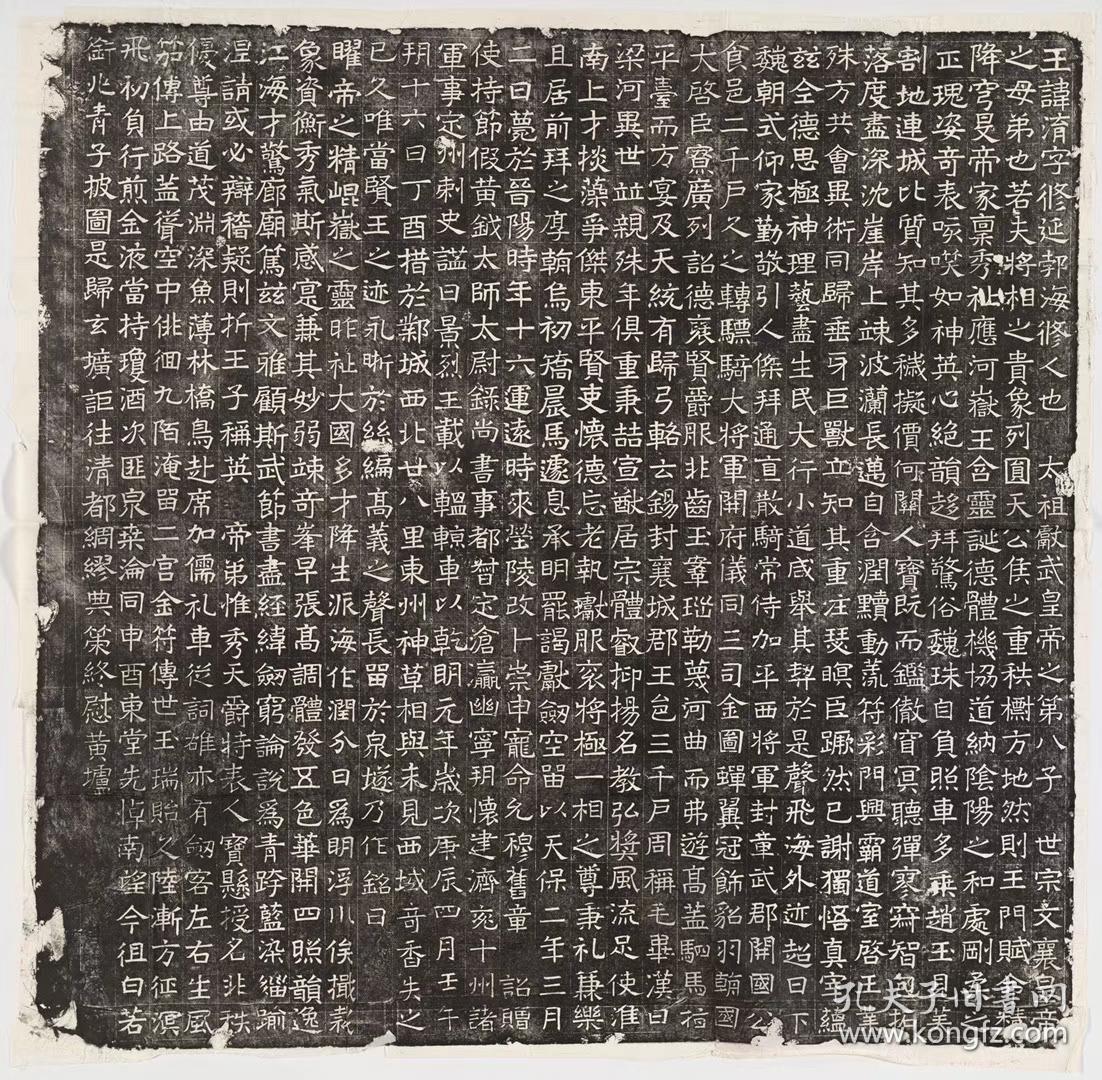 王諱淯字修延郣海修人也　太祖獻武皇帝之第八子　世宗文襄皇帝
之母弟也若夫將相之貴象列圓天公侯之重秩檦方地然則王門賦命
降穹旻帝家稟秀祉應河嶽王合靈誕德體機協道納陰陽之和處剛柔
正瑰姿奇表咳唉如神英心絶韻趍拜驚俗魏珠自負照車多乘趙玉見美
割地連城比質知其多穢擬價何關人寶旣而鑑徹窅冥聽彈寂寞智包
落度盡深沈崖岸上竦波瀾長邁自含潤黷動蓄符彩門興霸道室啓王業
殊方共會異術同歸垂牙巨獸立知其重汪瑟瞑臣蹶然已謝獨悟真宰
玆全德思極神理藝盡生民大行小道咸舉其契於是聲飛海外迹超日下
魏朝式仰家勤敬引人傑拜通直散騎常侍加平西將軍封章武郡開國公
食邑二千戶久之轉驃騎大將軍開府儀同三司金圖蟬翼冠飾貂羽
大啓臣寮廣列詔德襄賢爵服非齒玉鞶瑵勒蔑河曲而弗遊高蓋駟馬
平臺而方宴及天統有歸弓輅玄錫封襄城郡王邑三千戶周稱毛畢漢曰
梁河異世竝親殊年俱重秉喆宣猷居宗體叡抑揚名教弘奬風流足使淮
南上才掞藻爭傑東平賢吏懷德忘老執瓛服衮將極一相之尊秉礼兼樂
且居前拜之厚翰烏初矯晨馬遽息承明罷謁獻劒空留以天保二年三月
二日薨於晉陽時年十六運遠時來塋陵改卜崇申寵命允穆舊章　詔贈
使持節假黃鉞太師太尉錄尚書事都督定滄瀛幽寧玥懷建濟兖十州諸
軍事定州刺史謚曰景烈王載以轀輬車以乾明元年歲次庚辰四月壬午
朔十六日丁酉措於鄴城西北廿八里東州神草相與未見西域奇香失之
已久唯當賢王之迹永晰於絲編高義之聲長留於泉燧乃作銘曰
曜帝之精崐嶽之靈昨祉大國多才降生派海作潤分日爲明浮川俟㰖
象資衡秀氣斯感寔兼其妙弱竦奇峯早張高調體發五色華開四照韻逸
江海才驚廊廟篤玆文雅顧斯武節書盡経緯劒窮論說爲青跨藍染緇踰
涅請或必辯稽疑則折王子稱英　帝弟惟秀天爵特表人寶懸授名非秩
優尊由道茂淵深魚薄林橋鳥赴席加儒礼車從詞雄亦有劒客左右生風
笳傳上路蓋聳空中徘徊九陌淹留二宮金符傳世玉瑞貽久陸漸方征溟
飛初負行煎金液當持瓊酒次匪泉桒淪同申酉東堂先悼南望今徂白若
銜兆青子披圖是歸玄壙詎往清都綢繆典策終慰黃壚
孔夫子旧书网
kongfz.com